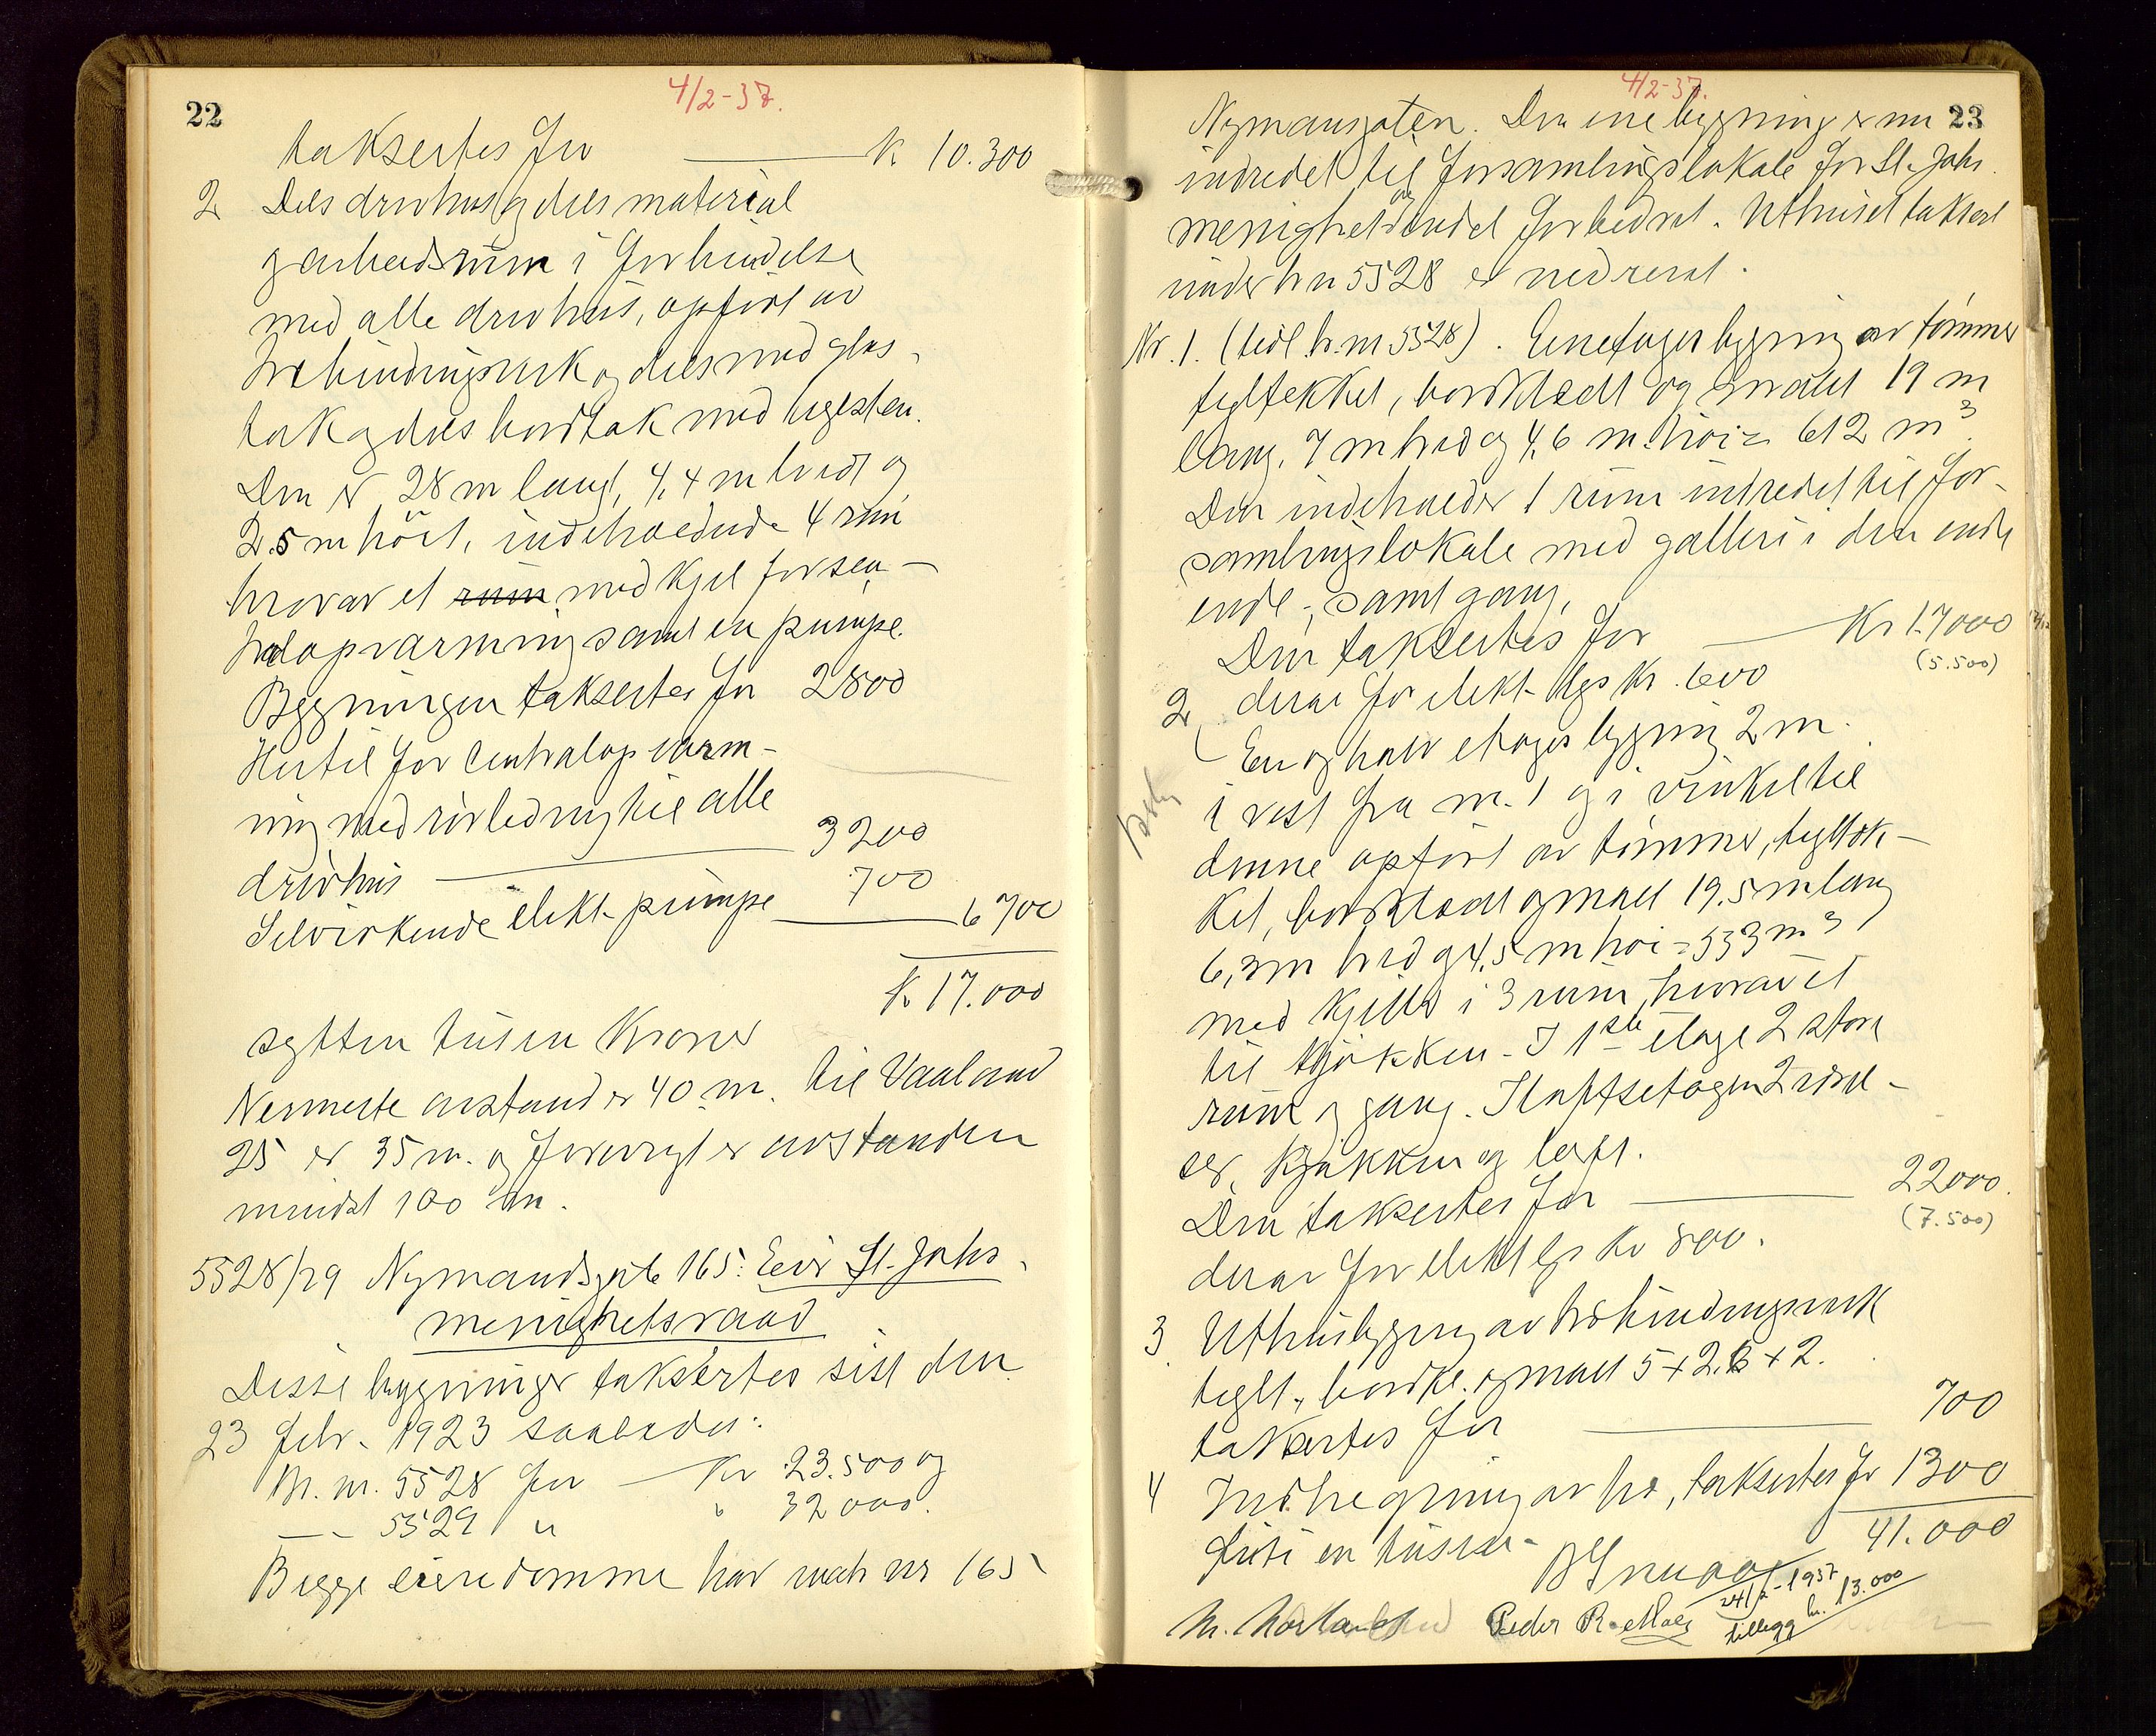 22
4/2-37.
taksertes for K 10.300
2 Dels drivhus og dels material
og arbeidsrum i forbindelse
med alle drivhus, opført av
trebindingsverk og dels med glas-
tak og dels bordtak med teglsten.
Den er 28 m langt, 4,4 m bredt og
2.5 m höit, indeholdende 4 rum
hvorav et rum med kjel for sen-
tralopvarming samt en pumpe.
Bygningen taksertes for 2800
Hertil for Centralopvarm-
ning med rørledning til alle
drivhus 3200
Selvvirkende elekt. pumpe 700
6700
K 17.000
sytten tusen Kroner
Nermeste avstand er 40 m. til Vaaland
25 er 35 m. og forövrigt er avstanden
mindst 100 m.
5528/29 Nymandsgate 165: Eier St. Johs.
menighetsraad
Disse bygninger taksertes sist den
23 febr. 1923 saaledes:
Br. nr. 5528 for Kr 23.500 og
— 5529 " " 32000.
Begge eiendomme har matr nr 165
4/2-37.
23
Nymansgaten. Den ene bygning er nu
indredet til forsamlingslokale for St. Johs.
menighet og endel forbedret. Uthuset taksert
under br n 5528 er nedrevet.
Nr. 1. (tidl. br. nr 5528). Enetages bygning av tömmer
tegltekket, bordklædt og malt 19 m
lang, 7 m bred og 4,6 m. höi = 612 m³.
Den indeholder 1 rum indredet til for-
samlingslokale med galleri i den ende
ende, samt gang.
Den taksertes for Kr 17000
(5.500)
derav for elekt. lys Kr. 600
2 En og halv etages bygning 2 m.
i vest fra nr. 1 og i vinkel til
denne opført av tömmer, tegltæk-
ket, bordklædt og malt 19.5 m lang
6,3 m bred og 4,5 m höi = 533 m³
med kjeller i 3 rum, hvorav et
til kjökken. I 1ste etage 2 store
rum og gang. I loftsetagen 2 værel-
ser, kjökken og loft.
Den taksertes for 22000.
(7.500)
derav for elekt lys Kr 800.
3. Uthusbygning av trebindingsverk
teglt., bordkl. og malt 5 + 2.6 + 2.
taksertes for 700
4 Indhegning av træ, taksertes for 1300
41.000
Firti en tusen.
24/2-1937
tillegg kr. 13.000
Peder R.